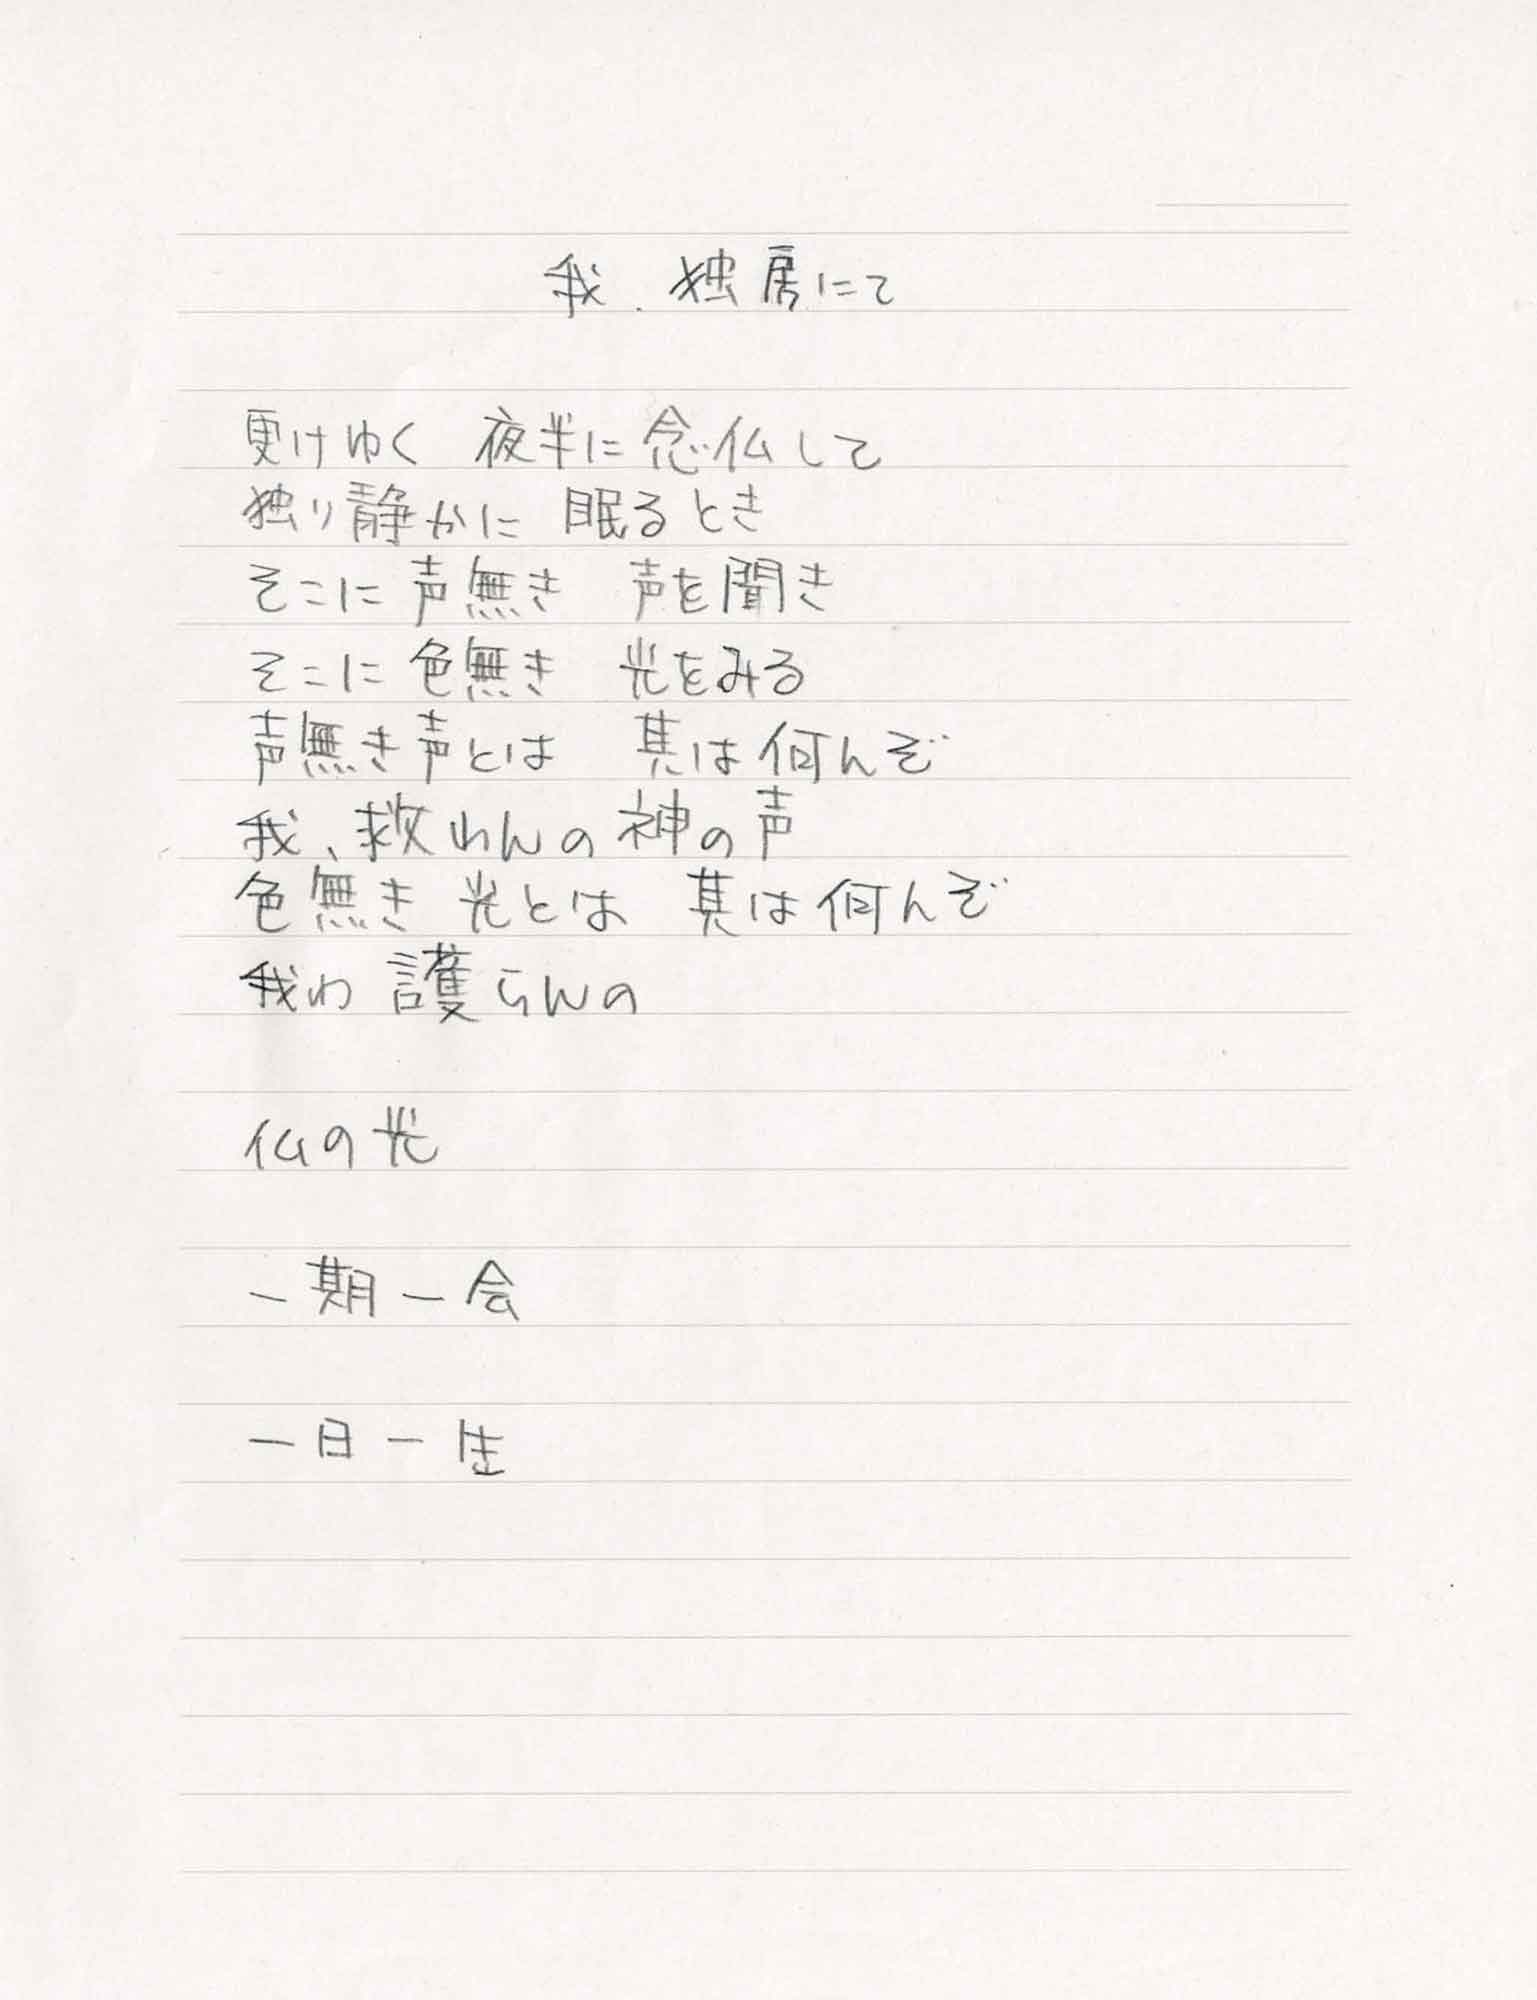 我、独房にて
更けゆく 夜半に念仏して
独り静かに 眠るとき
そこに声無き 声を聞き
そこに色無き 光をみる
声無き声とは 其は何んぞ
我、救われんの神の声
色無き 光とは 其は何んぞ
我わ 護らんの
仏の光
一期一会
一日一生